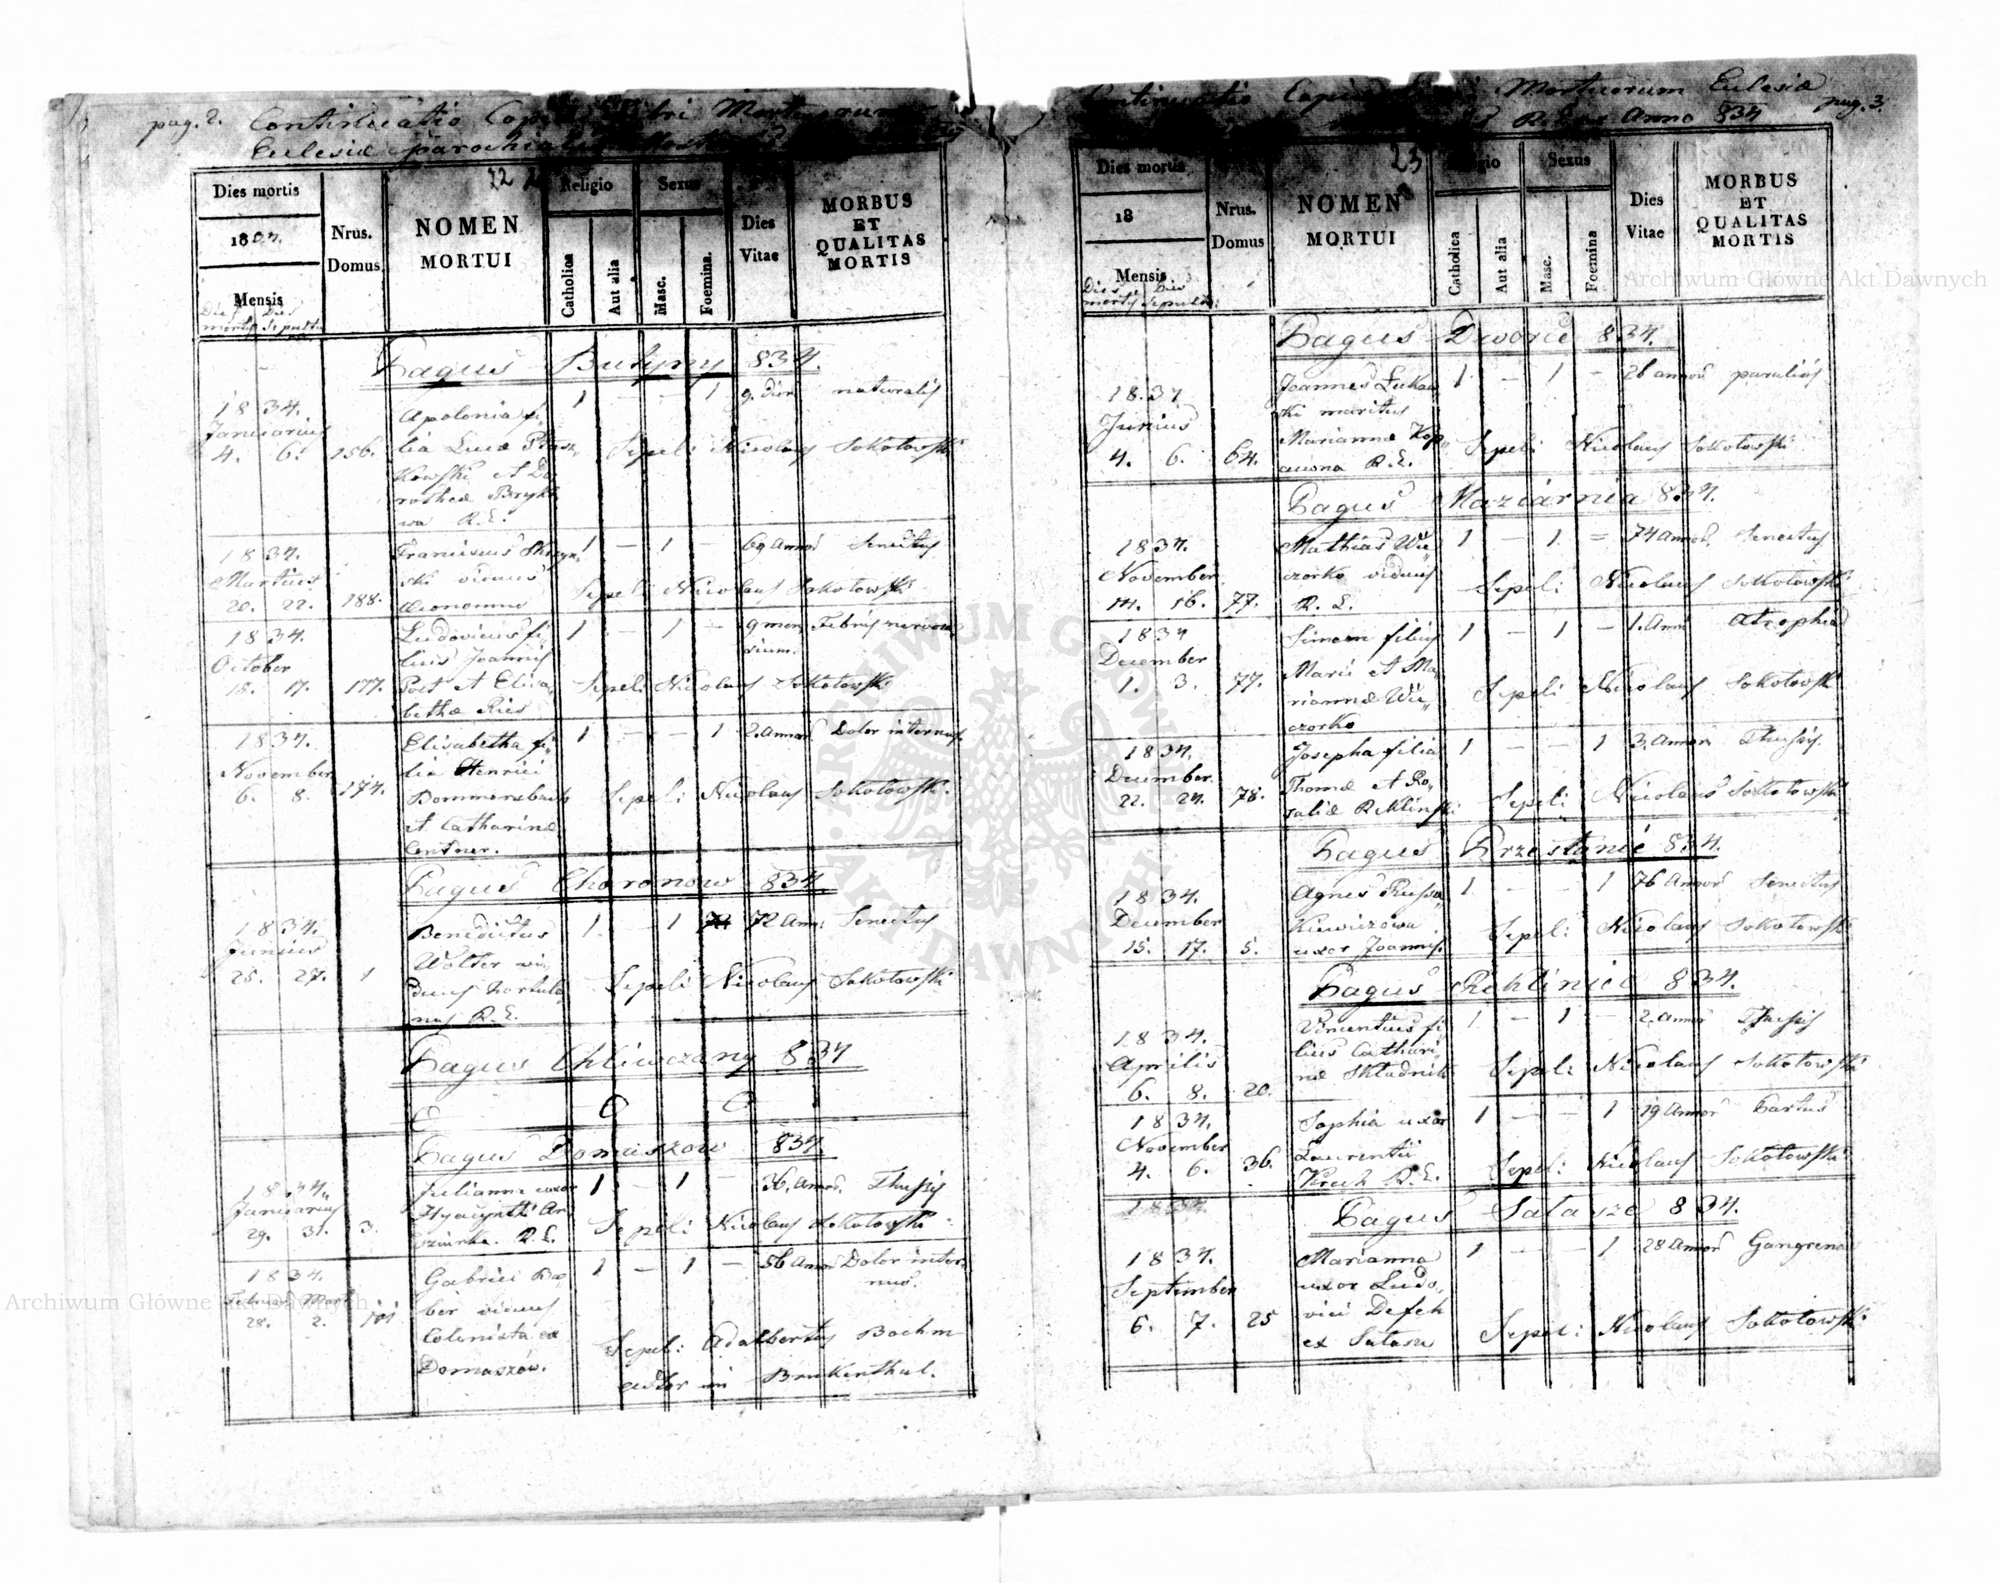 pag. 2. Continuatio Copiæ Libri Mortuorum
Eclesiæ parochialis
22
Dies mortis
1834.
Mensis
Dies Dies
mortis sepultu
Nrus.
Domus
NOMEN
MORTUI
Religio
Catholica
Aut alia
Sexus
Masc.
Foemina.
Dies
Vitae
MORBUS
ET
QUALITAS
MORTIS
Pagus Butyny 834.
1834.
Januarius
4. 6. 156.
Apolonia fi„
lia Lucæ Ptasz„
kowski et Do„
rotheæ Bryko„
wa R. L.
1 — — 1 9. dier naturalis
Sepel: Nicolaus Sokołowski
1834.
Martius
20. 22. 188.
Franciscus Skrzyn„
ski viduus
Œconomus
1 — 1 — 69 Annor Senectus
Sepeli Nicolaus Sokołowski
1834.
October
15. 17. 177.
Ludovicus fi„
lius Joannis
Post et Elisa„
bethæ Ries
1 — 1 — 9 men„
sium. Febris nervosa
Sepel: Nicolaus Sokołowski
1834.
November
6. 8. 174.
Elisabetha fi„
lia Henrici
Bommersbach
et Catharinæ
Centner.
1 — — 1 2. Annor Dolor internus.
Sepeli: Nicolaus Sokołowski.
Pagus Choronow 834.
1834.
Junius
25. 27. 1
Benedictus
Wolter vi„
duus hortula„
nus R. L.
1 — 1 72 Ann: Senectus
Sepeli Nicolaus Sokołowski
Pagus Chliwczany 834
0 0 0
Pagus Domaszow 834.
1834.
Januarius
29. 31. 3.
Julianna uxor
Hyacynthi
R. L.
1 — 1 — 36. Annor. Thussis
Sepeli Nicolaus Sokołowski
1834.
Februar Mart
28. 2. 101
Gabriel
ber viduus
Colonista ex
Domaszów.
1 — 1 — 56 Annor Dolor inter„
nus.
Sepel: Adalbertus Boehm
in Brukenthal.
Continuatio Copiæ Libri Mortuorum Eclesiæ
Anno 834 pag. 3.
23
Dies mortis
18
Mensis
Dies Dies
mortis sepultu:
Nrus.
Domus
NOMEN
MORTUI
Religio
Catholica
Aut alia
Sexus
Masc.
Foemina
Dies
Vitae
MORBUS
ET
QUALITAS
MORTIS
Pagus Dworce 834.
1834
Junius
4. 6. 64.
Joannes Lukaw„
ski maritus
Mariannæ Kop„
R. L.
1 — 1 — 26 annor paralisis
Sepel: Nicolaus Sokołowski
Pagus Maziarnia 834.
1834.
November
14. 16. 77.
Mathias Wie„
czorko viduus
R. L.
1 — 1. = 74 Annor. Senectus
Sepel: Nicolaus Sokołowski
1834
December
1. 3. 77.
Simeon filius
Mariæ et Ma„
riannæ Wie„
czorko
1 — 1 — 1. Anni Atrophia
Sepeli Nicolaus Sokołowski
1834.
December.
22. 24. 78.
Josepha filia
Thomæ et Ro„
saliæ Reklinski
1 — — 1 3. Annor. Thussis.
Sepeli: Nicolaus Sokołowski
Pagus Przestanie 834.
1834.
December
15. 17. 5.
Agnes Russa„
kiewiczowa
uxor Joannis.
1 — — 1 76 Annor Senectus
Sepel: Nicolaus Sokołowski
Pagus Rehlinice 834.
1834.
Aprilis
6. 8. 20.
Vincentius fi„
lius Cathari„
næ Składnik
1 — 1 — 2. annor Thussis
Sepel: Nicolaus Sokołowski
1834.
November
4. 6. 36.
Sophia uxor
Laurentii
Kruk R. L.
1 — — 1 19 Annor Partus
Sepel: Nicolaus Sokołowski
1834
Pagus Salasze 834.
1834.
September
6. 7. 25
Marianna
uxor Ludo„
vici Defeh
ex Salasze
1 — — 1 28 Annor Gangrena
Sepel: Nicolaus Sokołowski
Archiwum Główne Akt Dawnych
Archiwum Główne Akt Dawnych
ARCHIWUM GŁÓWNE AKT DAWNYCH